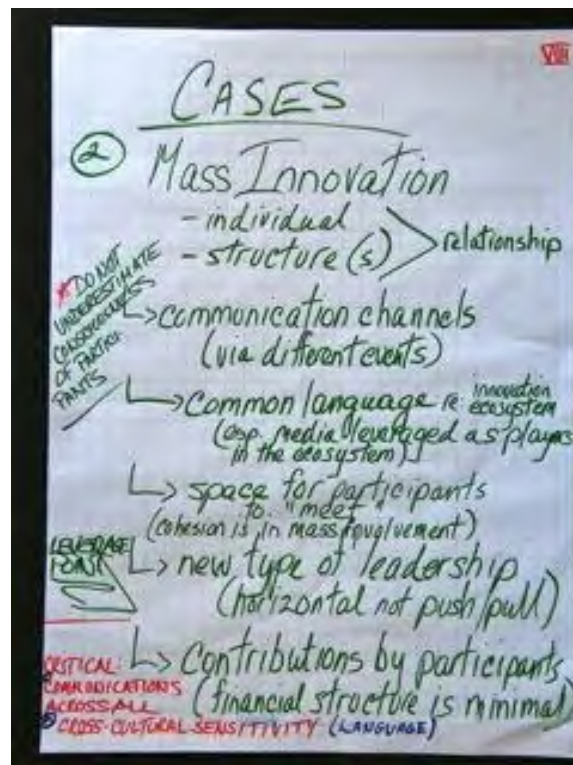 VIII
CASES
② Mass Innovation
- individual
- structure(s) > relationship
*DO NOT
UNDERESTIMATE
CONSCIOUSNESS
OF PARTICI-
PANTS
↳ communication channels
(via different events)
↳ Common language re innovation
ecosystem
(esp. media leveraged as players
in the ecosystem)
↳ space for participants
to "meet"
(cohesion is in mass involvement)
LEVERAGE
POINT
↳ new type of leadership
(horizontal not push/pull)
↳ Contributions by participants
(financial structure is minimal)
CRITICAL:
COMMUNICATIONS
ACROSS ALL
CROSS-CULTURAL SENSITIVITY (LANGUAGE)